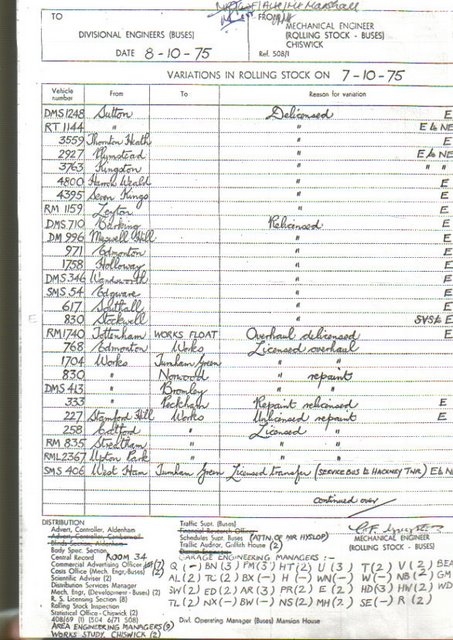 TO
FROM
DIVISIONAL ENGINEERS (BUSES)
MECHANICAL ENGINEER
(ROLLING STOCK - BUSES)
CHISWICK
DATE 8-10-75
Ref. 508/1
VARIATIONS IN ROLLING STOCK ON 7-10-75
Vehicle number From To Reason for variation
DMS 1248 Sutton Delicensed E
RT 1144 " " E & NE
3559 Thornton Heath " E
2927 Plumstead " E & NE
3763 Kingston " " "
4800 Harrow Weald " E
4395 Seven Kings " E
RM 1159 Leyton " E
DMS 710 Barking Relicensed E
DM 996 Muswell Hill " E
971 Edmonton " E
1758 Holloway " E
DMS 346 Wandsworth " E
SMS 54 Edgware " E
617 Southall " E
E 830 Stockwell " E
RM 1740 Tottenham WORKS FLOAT Overhaul delicensed E
768 Edmonton Works Licensed overhaul
1704 Works Turnham Green " "
830 " Norwood " repaint
DMS 413 " Bromley " "
333 " Peckham Repaint relicensed E
227 Stamford Hill Works Unlicensed repaint E
258 Catford " Licensed "
RM 835 Streatham " " "
RML 2367 Upton Park " " "
SMS 406 West Ham Turnham Green Licensed transfer (SERVICE BUS to HACKNEY TNR) E & NE
continued over
DISTRIBUTION
Advert. Controller, Aldenham
Advert. Controller, Camberwell
Blinds Section, Aldenham
Body Spec. Section
Central Record ROOM 34
Commercial Advertising Officer
Costs Office (Mech. Engr, Buses) (2)
Scientific Adviser (2)
Distribution Services Manager
Mech. Engr, (Development - Buses) (2)
R. S. Licensing Section (8)
Rolling Stock Inspection
Statistical Office - Chiswick (2)
AREA ENGINEERING MANAGERS (2)
WORKS STUDY, CHISWICK (2)
Traffic Supt. (Buses)
Schedules Supt. (Buses) (ATTN. OF MR HYSLOP)
Traffic Auditor, Griffith House (2)
MECHANICAL ENGINEER
(ROLLING STOCK - BUSES)
GARAGE ENGINEERING MANAGERS :-
Q (-) BN (3) FM (3) HT (2) U (3) T (2) V (2) BEA
AL (2) TC (2) BX (-) H (-) WN (-) W (-) NB (2) GM
SW (2) ED (2) AR (3) PR (2) E (2) HD (3) HW (2) WD
TL (2) NX (-) BW (-) NS (2) MH (2) SE (-) R (2)
Divl. Operating Manager (Buses) Mansion House